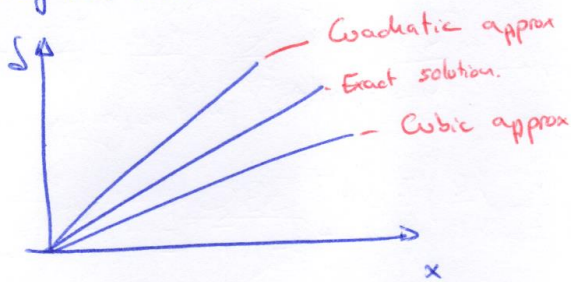 δ
Quadratic approx
Exact solution.
Cubic approx
x